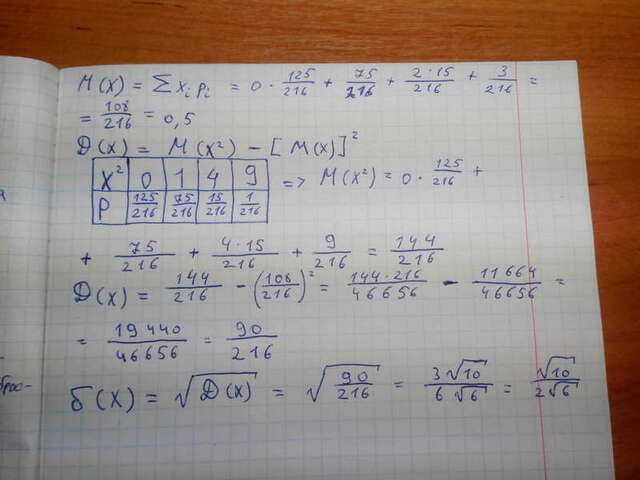 M(X) = ∑ xᵢ pᵢ = 0 · 125/216 + 75/216 + 2·15/216 + 3/216 =
= 108/216 = 0,5
D(X) = M(X²) - [M(X)]²
X² 0 1 4 9 => M(X²) = 0 · 125/216 +
P 125/216 75/216 15/216 1/216
+ 75/216 + 4·15/216 + 9/216 = 144/216
D(X) = 144/216 - (108/216)² = 144·216/46656 - 11664/46656 =
= 19440/46656 = 90/216
б(X) = √D(X) = √90/216 = 3√10/6√6 = √10/2√6